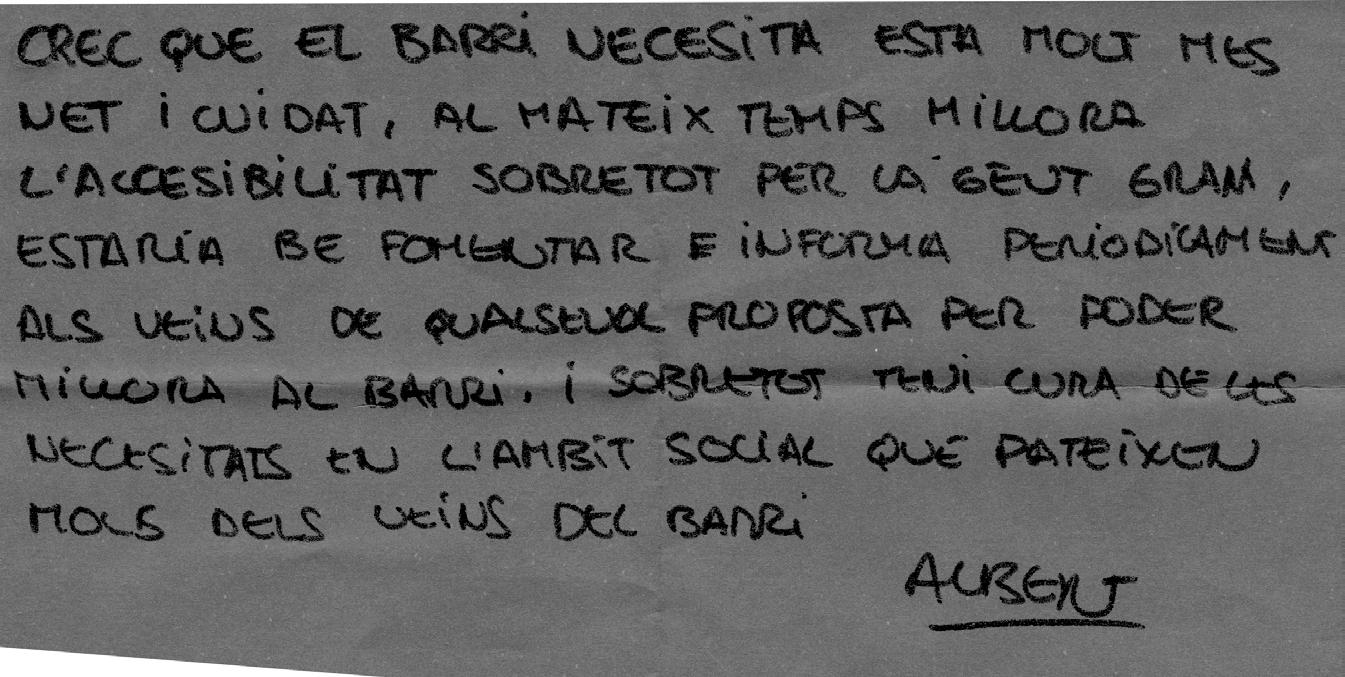 CREC QUE EL BARRI NECESITA ESTA MOLT MES
NET I CUIDAT, AL MATEIX TEMPS MILLORA
L'ACCESIBILITAT SOBRETOT PER LA GENT GRAN,
ESTARÍA BE FOMENTAR E INFORMA PERIODICAMENT
ALS VEINS DE QUALSEVOL PROPOSTA PER PODER
MILLORA AL BARRI. I SOBRETOT TENI CURA DE LES
NECESITATS EN L'AMBIT SOCIAL QUE PATEIXEN
MOLS DELS VEINS DEL BARRI
ALBERT